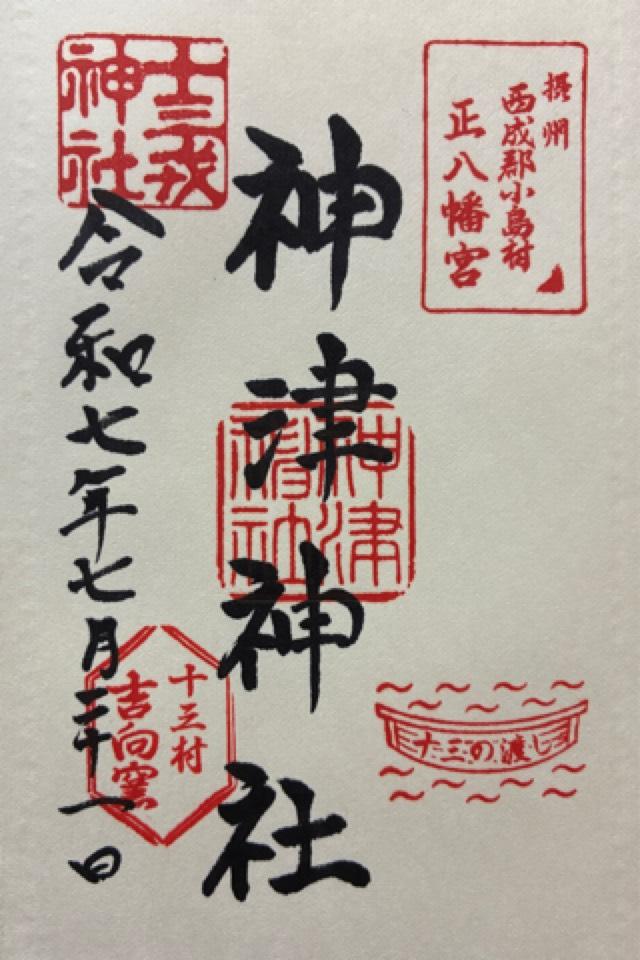 摂州
西成郡小島村
正八幡宮
神津神社
神津神社
十三戎
神社
令和七年七月二十一日
十三村
吉向窯
十三の渡し